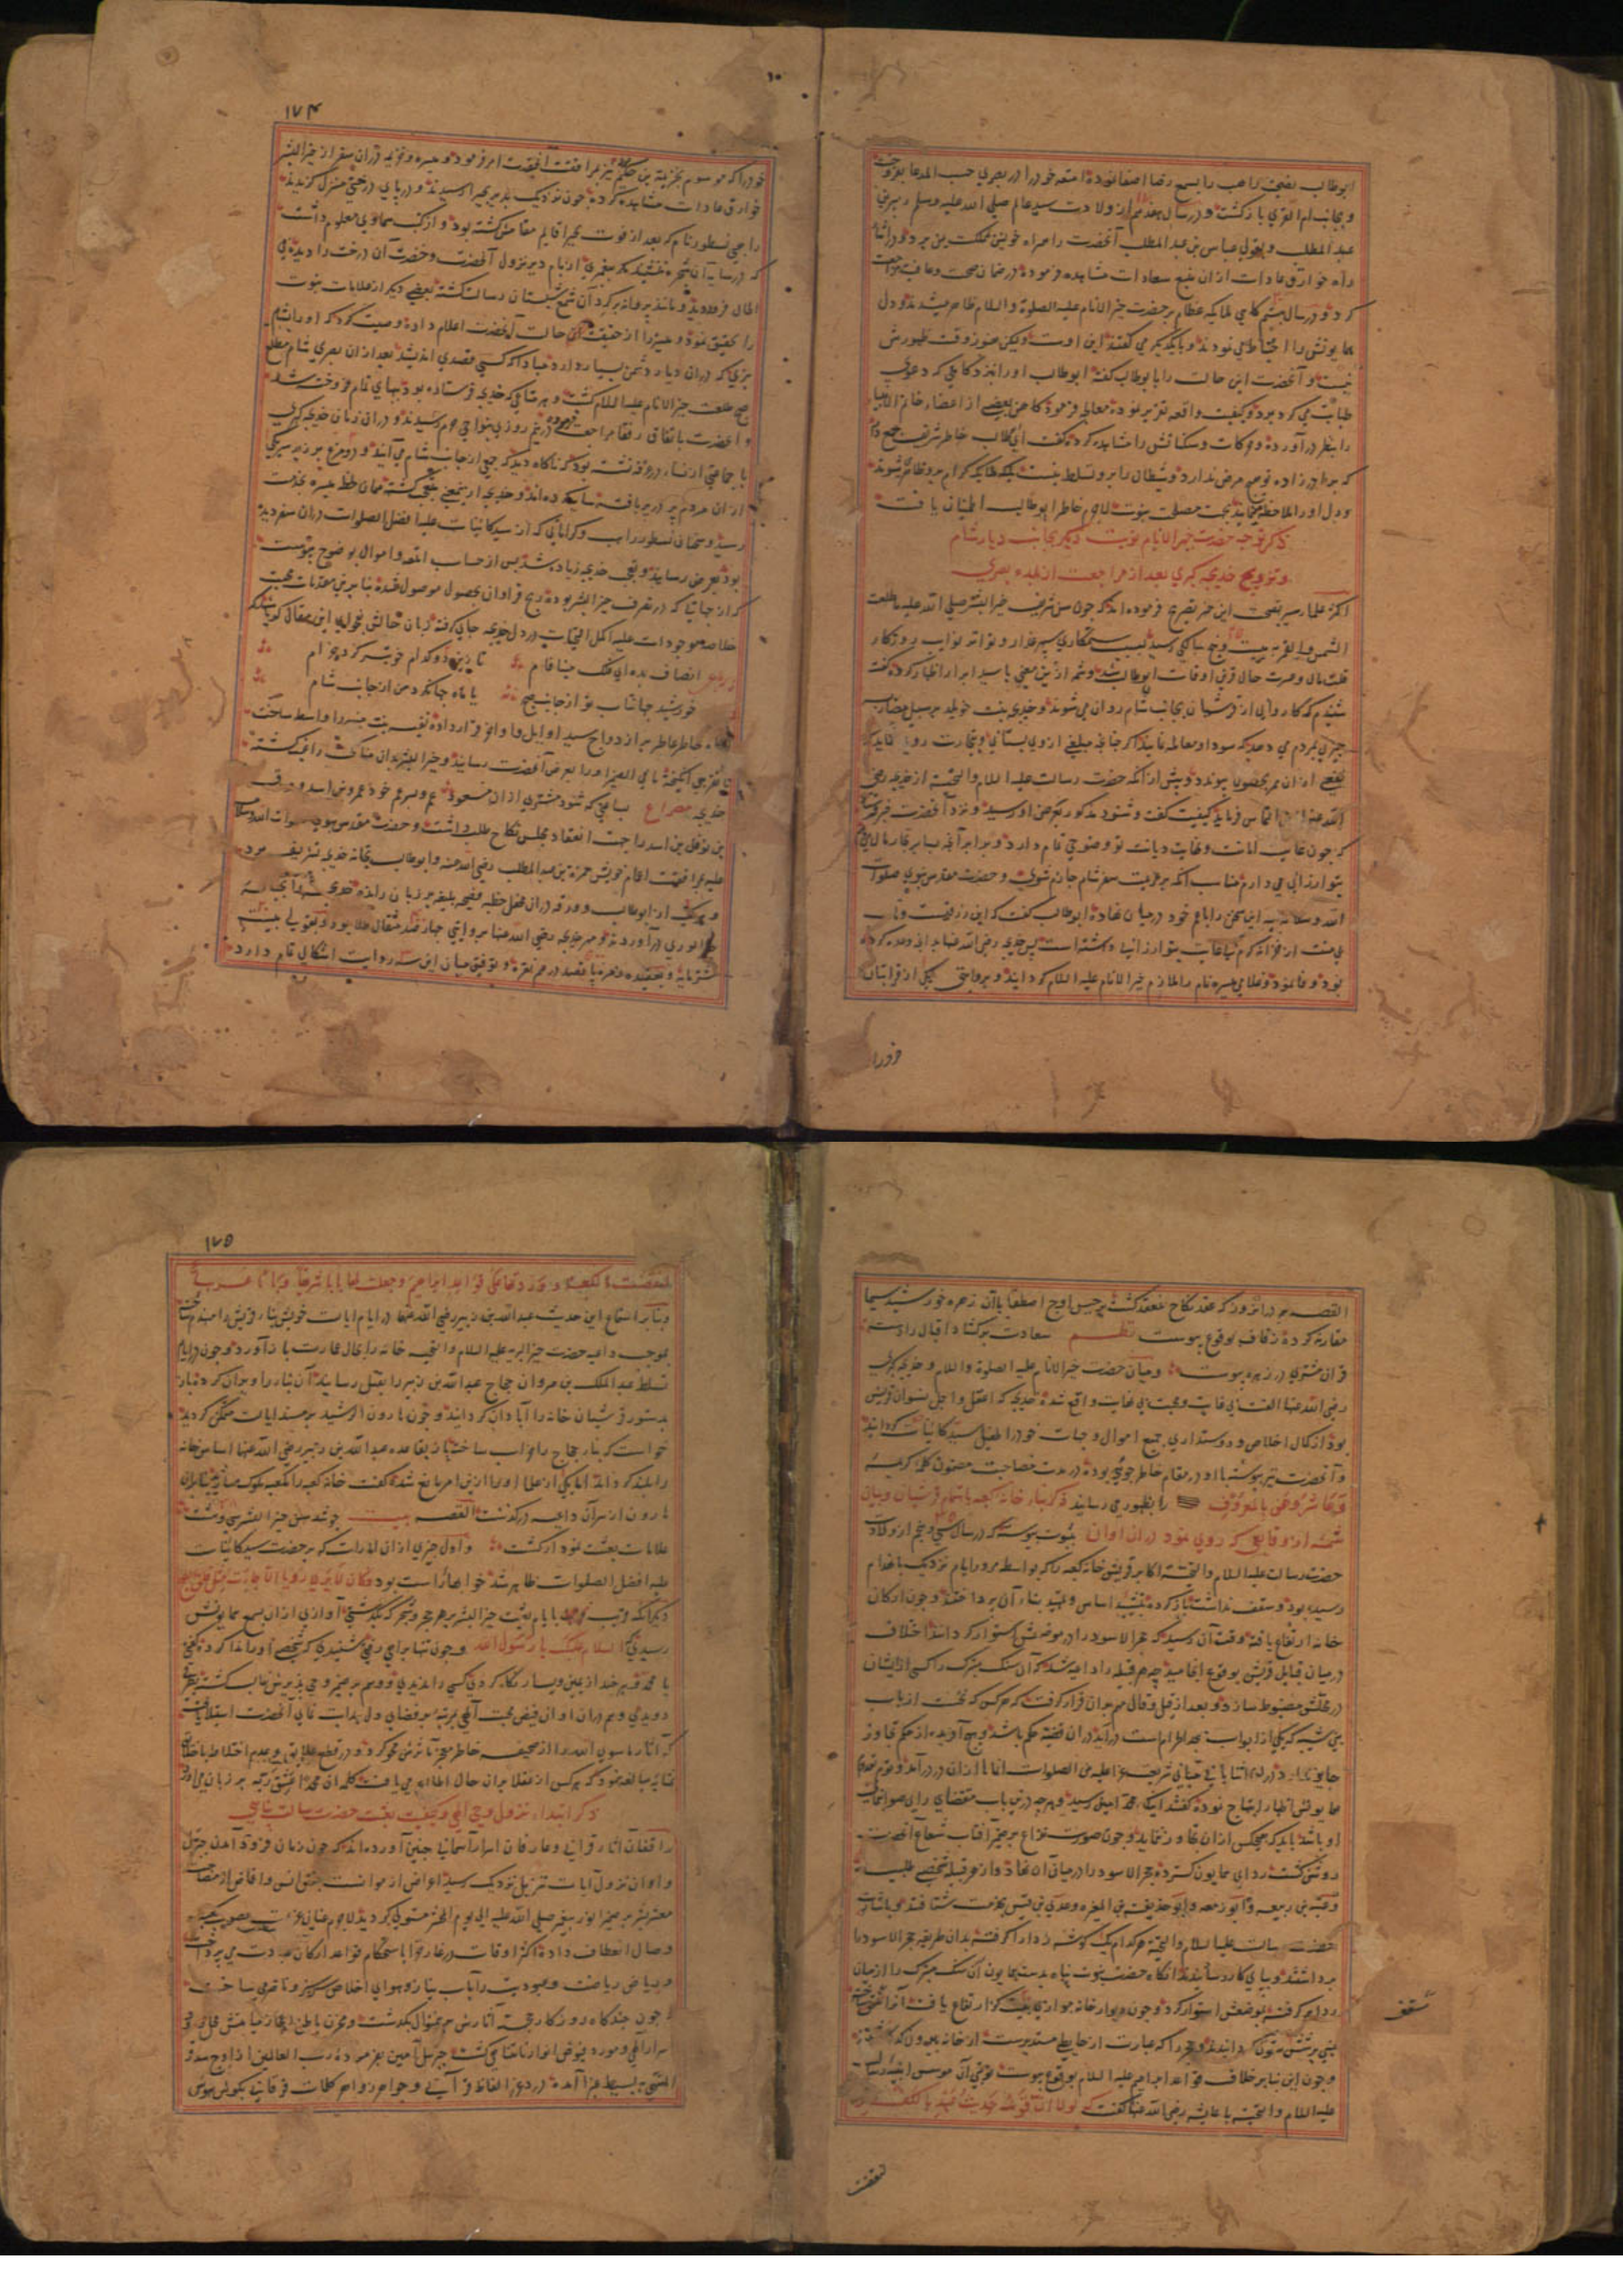 ابوطالب نصیحت راهب را بسمع رضا اصغا نموده امتعه خود را در بصری حسب المدعا بفروخت
و بجانب ام القری بازگشت و در سال هفدهم از ولادت سید عالم صلی الله علیه وسلم زبیر بن
عبد المطلب و بقول عباس بن عبد المطلب آنحضرت را همراه خویش بمملکت یمن برد و در اثناء
راه خوارق عادات از ان منبع سعادات مشاهده فرموده در ضمان صحت و عافیت مراجعت
کرد و در سال بیستم گاهی ملایکه عظام بر حضرت خیر الانام علیه الصلوة والسلام ظاهر میشدند و دل
همایونش را احتیاط می نمودند و بایکدیکر می گفتند این اوست ولیکن هنوز وقت ظهورش
نیست و آنحضرت این حالت را با ابوطالب گفته ابوطالب او را نزد کاهنی که دعوی
طبابت می کرد برد و کیفیت واقعه تقریر نموده معالجه فرمود کاهن بعضی از اعضاء خاتم الانبیا
را بنظر درآورده و حرکات و سکناتش را مشاهده کرده گفت ای ابوطالب خاطر شریف جمع دار
که برادرزاده تو هیچ مرض ندارد و شیطان را برو تسلط نیست بلکه ملایکه کرام برو ظاهر میشوند
و دل او را ملاحظه مینمایند بجهت مصلحت نبوت لاجرم خاطر ابوطالب اطمینان یافت
ذکر توجه حضرت خیر الانام نوبت دیکر بجانب دیار شام
و تزویج خدیجه کبری بعد از مراجعت از بلده بصری
اکثر علماء سیر بصحت این خبر تصریح فرموده اند که چون سن شریف خیر البشر صلی الله علیه ماطلعت
الشمس والقمر به بیست و پنج سالگی رسید بسبب ستمکاری سپهر غدار و تواتر نوایب روزکار
قلت مال و عسرت حال قرین اوقات ابوطالب شد و شمه از این معنی با سید ابرار اظهار کرده گفت
شنیدم که کاروانی از قرشیان بجانب شام روان می شوند و خدیجه بنت خویلد بر سبیل مضاربت
چیزی بمردم می دهد که سودا و معامله نمایند اکر چنانچه مبلغی از وی بستانی و بتجارت روی نمایی
نفعی از ان ممر بحصول پیوندد و پیش از انکه حضرت رسالت علیه السلام والتحیة از خدیجه رضی
الله عنها التماس فرماید کیفیت گفت و شنود مذکور بعرض او رسید و نزد آنحضرت خبر فرستاد
که چون غایت امانت و نهایت دیانت تو وضوحی تمام دارد دو برابر آنچه بسایر تجار مال میدهم
بتو ارزانی می دارم مناسب آنکه بر عزیمت سفر شام جازم شوی و حضرت مقدس نبوی صلوات
الله وسلامه علیه این سخن را با عم خود در میان نهاد ابوطالب گفت که این رزقیست
بی منت از خزانه کرم بی غایت بتو ارزانی داشته است پس خدیجه رضی الله عنها بدانچه وعده کرده
بود وفا نمود و غلامی میسره نام را ملازم خیر الانام علیه السلام گردانید و بروایتی یکی از قرابتان
خود را
۱۷۴
خود را که موسوم بخزیمة بن حکیم نیز بمرافقت آنحضرت امر فرمود و میسره و خزیمه در ان سفر از خیر البشر
خوارق عادات مشاهده کردند چون نزدیک بدیر بحیرا رسیدند و در پای درختی منزل گزیدند
راهبی نسطور نام که بعد از فوت بحیرا قایم مقامش گشته بود و از کتب سماوی معلوم داشت
که در سایه آن شجره ننشیند مکر پیغمبری از بام دیر نزول آنحضرت و خضرت آن درخت را دیده فی
الحال فرود دوید و مانند پروانه بر گرد آن شمع شبستان رسالت گشته بعضی دیکر از علامات نبوت
را تحقیق نمود و میسره را از حقیقت حالت آنحضرت اعلام داده وصیت کرد که او را بشام
مبری که در ان دیار دشمن بسیار دارد مبادا که کسی قصدی اندیشد بعد از ان بصری شام مطلع
صبح طلعت خیر الانام علیه السلام گشت و هر متاعی که خدیجه فرستاده بود ببهای تمام فروخته شد
و آنحضرت باتفاق رفقا مراجعت فرموده در نیم روزی بنواحی حرم رسیدند و در ان زمان خدیجه کبری
با جماعتی از نساء در غرفه نشسته بود که ناکاه دید که جمعی از جانب شام می آیند و دو مرغ بر زبر سر یکی
از ان مردم پر در پر بافته سایه کرده اند و خدیجه از تعجب متعجب گشته همان لحظه میسره بخدمت
رسید و سخنان نسطور راهب و کراماتی که از سید کاینات علیه افضل الصلوات در ان سفر دیده
بود بعرض رسانید و تعجب خدیجه زیاده شد پس از حساب امتعه و اموال بوضوح پیوست
که از اجناسی که در تصرف خیر البشر بود ربح فراوان بحصول موصول شده بنابرین مقدمات محبت
خلاصه موجودات علیه اکمل التحیات در دل خدیجه جای گرفته زبان حالش بفحوای این مقال گویا شد
رباعی انصاف بده ای فلک مینا فام تا زین دو کدام خوبتر کرد خرام
خورشید جهانتاب تو از جانب صبح یا ماه جهانکرد من از جانب شام
خاطر عاطر بر ازدواج سید اوایل و اواخر قرار داده نفیسه بنت منیه را واسطه ساخت
تا بهر چه انگیخته ما فی الضمیر او را بعرض آنحضرت رسانید و خیر البشر بدان مناکحت راغب گشته
خدیجه مصراع بساعتی که شود مشتری از ان مسعود عم و پسر عم خود عمرو بن اسد و ورقه
بن نوفل بن اسد را جهت انعقاد مجلس نکاح طلب داشت و حضرت مقدس نبوی صلوات الله وسلامه
علیه بمرافقت اعمام خویش حمزة بن عبد المطلب رضی الله عنه و ابوطالب بخانه خدیجه تشریف برد
و هریک از ابوطالب و ورقه در ان محفل خطبه فصیحه بلیغه بر زبان رانده خدیجه را
درآوردند و مهر خدیجه رضی الله عنها بروایتی چهارصد مثقال طلا بود و بقولی بیست
شتر مایه و بعقیده زمره پانصد درهم نقره و توفیق میان این سه روایت اشکالی تمام دارد
القصه هم در انروز که عقد نکاح منعقد گشت برجیس اوج اصطفا با آن زهره خورشید سیما
مقارنه کرده زفاف بوقوع پیوست نظم سعادت برگشاد اقبال را دست
قران مشتری در زهره پیوست ومیان حضرت خیر الانام علیه الصلوة والسلام و خدیجه کبری
رضی الله عنها الفت بی غایت و محبت بی نهایت واقع شده خدیجه که اعقل و اجمل نسوان قریش
بود از کمال اخلاص و دوستداری جمیع اموال و جهات خود را طفیل سید کاینات گردانید
و آنحضرت نیز پیوسته با او در مقام خاطر جوئی بوده در مدت مصاحبت مضمون کلمه کریمه
وَعَاشِرُوهُنَّ بِالْمَعْرُوفِ را بظهور می رسانید ذکر بناء خانه کعبه باهتمام قرشیان و بیان
شمه از وقایعی که روی نمود در ان اوان بثبوت پیوسته که در سال سی و پنجم از ولادت
حضرت رسالت علیه السلام والتحیة اکابر قریش خانه کعبه را که بواسطه مرور ایام نزدیک بانهدام
رسیده بود و سقف نداشت باز کرده بتشیید اساس و تمهید بناء آن پرداختند و چون ارکان
خانه ارتفاع یافته وقت آن رسید که حجر الاسود را در موضعش استوار گردانند اختلاف
در میان قبایل قریش بوقوع انجامید چه هر قبیله را داعیه شد که آن سنگ متبرک را کسی از ایشان
در محلش مضبوط سازد و بعد از قیل و قال مهم بدان قرار گرفت که هر کس که نخست از باب
بنی شیبه که یکی از ابواب مسجد الحرام است درآید در ان قضیه حکم باشد و هیچ آفریده از حکم تجاوز
جایز ندارد در این اثنا بانی مبانی شریعت غرا علیه من الصلوات انماها از ان در درآمد و قوم بقدوم
همایونش اظهار ابتهاج نموده گفتند اینک محمد امین رسید و هرچه درین باب مقتضای رای صواب نمای
او باشد باید که هیچکس از ان تجاوز ننماید و چون صورت نزاع بر ضمیر آفتاب شعاع آنحضرت
روشن گشت ردای همایون گسترده حجر الاسود را در میان آن نهاد و از هر قبیله شخصی طلبیده
و عتبه بن ربیعه و ابو زمعه و ابو حذیفه بن المغیره و عدی بن قیس بخدمت شتافتند و باشارت
حضرت رسالت علیه السلام والتحیة هر کدام یک گوشه ردا را گرفته بدان طریقه حجر الاسود را
برداشتند و بپای کار رسانیدند انگاه حضرت نبوت پناه بدست همایون آن سنگ متبرک را از میان
ردا برگرفته بموضعش استوار کرد و چون دیوار خانه
ستون گردانیدند و حجر را که عبارت از حایطی مستدیرست از خانه بیرون گذاشتند
و چون این بنا بر خلاف قواعد ابراهیم علیه السلام بوقوع پیوست نوبتی آن موسس ابنیه رسالت
علیه السلام والتحیة با عایشه رضی الله عنها گفت که لولا ان قومک حدیث عهد بالکفر
سقف
لنقضت
۱۷۵
لنقضت الکعبة ورددتها علی قواعد ابراهیم وجعلت لها بابا شرقیا وبابا غربیا
و بنابر استماع این حدیث عبدالله بن زبیر رضی الله عنهما در ایام ایالت خویش بناء قریش را منهدم ساخته
بموجب داعیه حضرت خیر البریه علیه السلام والتحیه خانه را بحال عمارت باز آورد و چون در ایام
تسلط عبد الملک بن مروان حجاج عبدالله بن زبیر را بقتل رسانید آن بناء را ویران کرده باز
بدستور قرشیان خانه را آبادان گردانید و چون هارون الرشید بر مسند ایالت متمکن گردید
خواست که بناء حجاج را خراب ساخته باز بقاعده عبدالله بن زبیر رضی الله عنها اساس خانه
را بلند گرداند اما یکی از علما او را ازین امر مانع شده گفت خانه کعبه را ملعبه ملوک مساز بنابران
هارون از سر آن داعیه درگذشت القصه بیت چو شد سال خیر البشر سی و هشت
علامات بعثت نمودار گشت و اول چیزی از ان امارات که بر حضرت سید کاینات
علیه افضل الصلوات ظاهر شد خوابهای راست بود فکان لایری رویا الا جائت مثل فلق الصبح
دیگر آنکه قریب بایام بعثت خیر البشر بر هر حجر و شجر که بگذشتی آوازی از ان بسمع همایونش
رسیدی که السلام علیک یا رسول الله و چون تنها براهی رفتی شنیدی که شخصی او را ندا کرده گفتی
یا محمد و هرچند از یمین و یسار نگاه کردی کسی را ندیدی و وهم بر ضمیر وحی پذیرش غالب گشته بطرفی
دویدی و هم در ان اوان فیض محبت الهی بمرتبه بر فضای دل هدایت نمای آنحضرت استیلا یافت
که آثار ما سوی الله را از صحیفه خاطر مهر تاثیرش محو کرد و در قطع علایق و عدم اختلاط با خلق
بمثابه مبالغه نمود که هر کس از عقلا بر ان حال اطلاع می یافت کلمه ان محمدا عشق ربه بر زبان می آورد
ذکر ابتداء نزول وحی الهی و کیفیت بعثت حضرت رسالت پناهی
واقفان آثار قرآنی و عارفان اسرار آسمانی چنین آورده اند که چون زمان فرود آمدن جبریل
و اوان نزول آیات تنزیل نزدیک رسید اعراض از موانست جنس انس و
معتبر بر ضمیر انور پیغمبر صلی الله علیه الی یوم المحشر مستولی گردید لاجرم عنان عزیمت بصوب
وصال انعطاف داده اکثر اوقات در غار حرا باستحکام قواعد ارکان عبادت می پرداخت
و ریاض ریاضت و عبودیت را بآب نیاز و هوای اخلاص سرسبز و ناضر می ساخت
چون چندگاه روزگار خجسته آثارش برین منوال بگذشت و مخزن باطن
اسرار الهی و مورد فیوض انوار نامتناهی گشت جبریل امین بفرموده رب العالمین از اوج سدرة
المنتهی ببسیط غبرا آمده درر غرر الفاظ قرآنی و جواهر زواهر کلمات فرقانی بگوش هوش